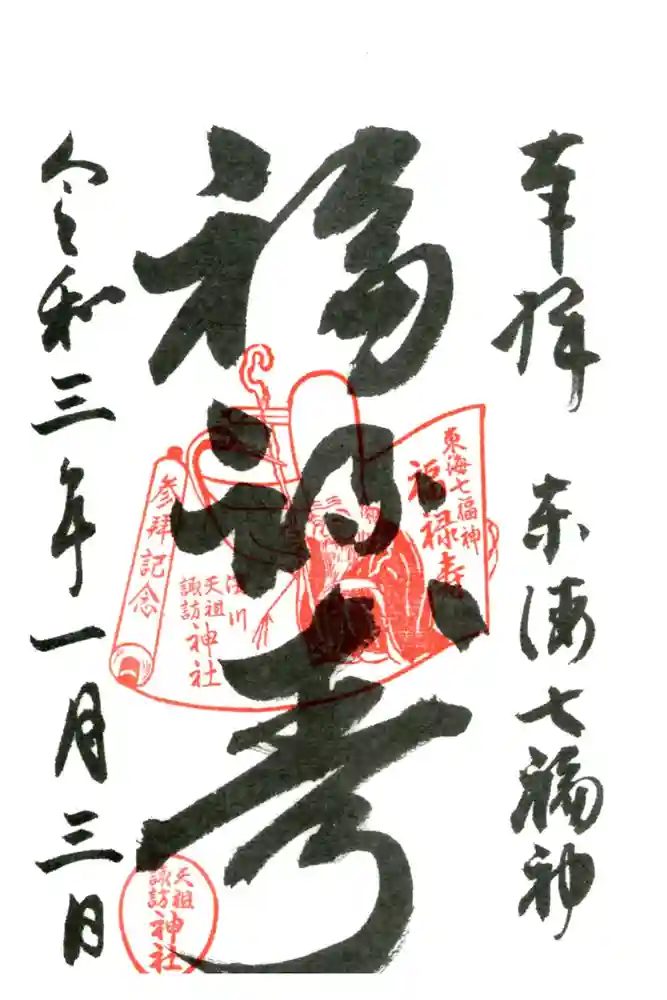 奉拝
東海七福神
福禄寿
令和三年一月三日
東海七福神
福禄寿
参拝記念
浜川
天祖
諏訪
神社
天祖
諏訪
神社